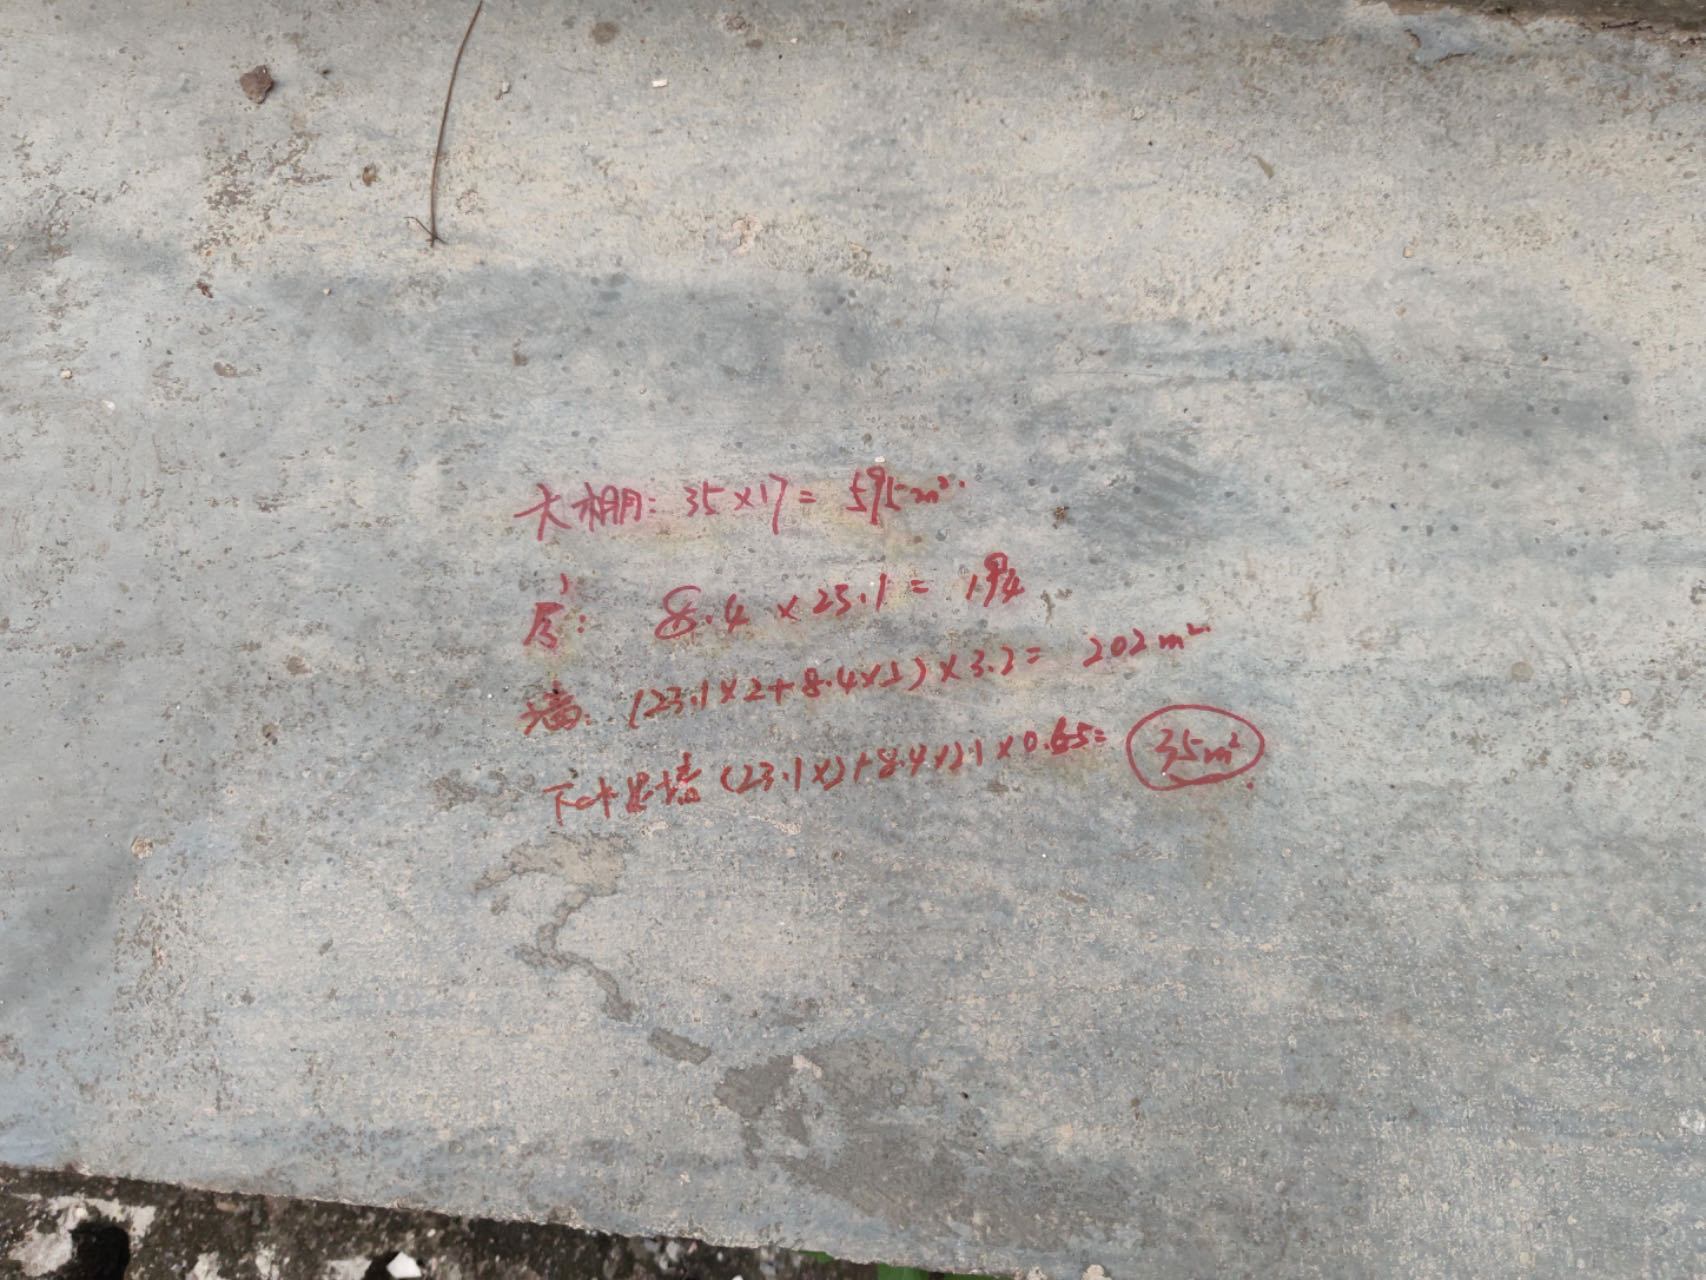 大棚: 35×17= 595m².
房: 8.4×23.1= 194
墙: (23.1×2+8.4×2)×3.2= 202m².
下水泥墙 (23.1×2+8.4×2)×0.65= 35m².